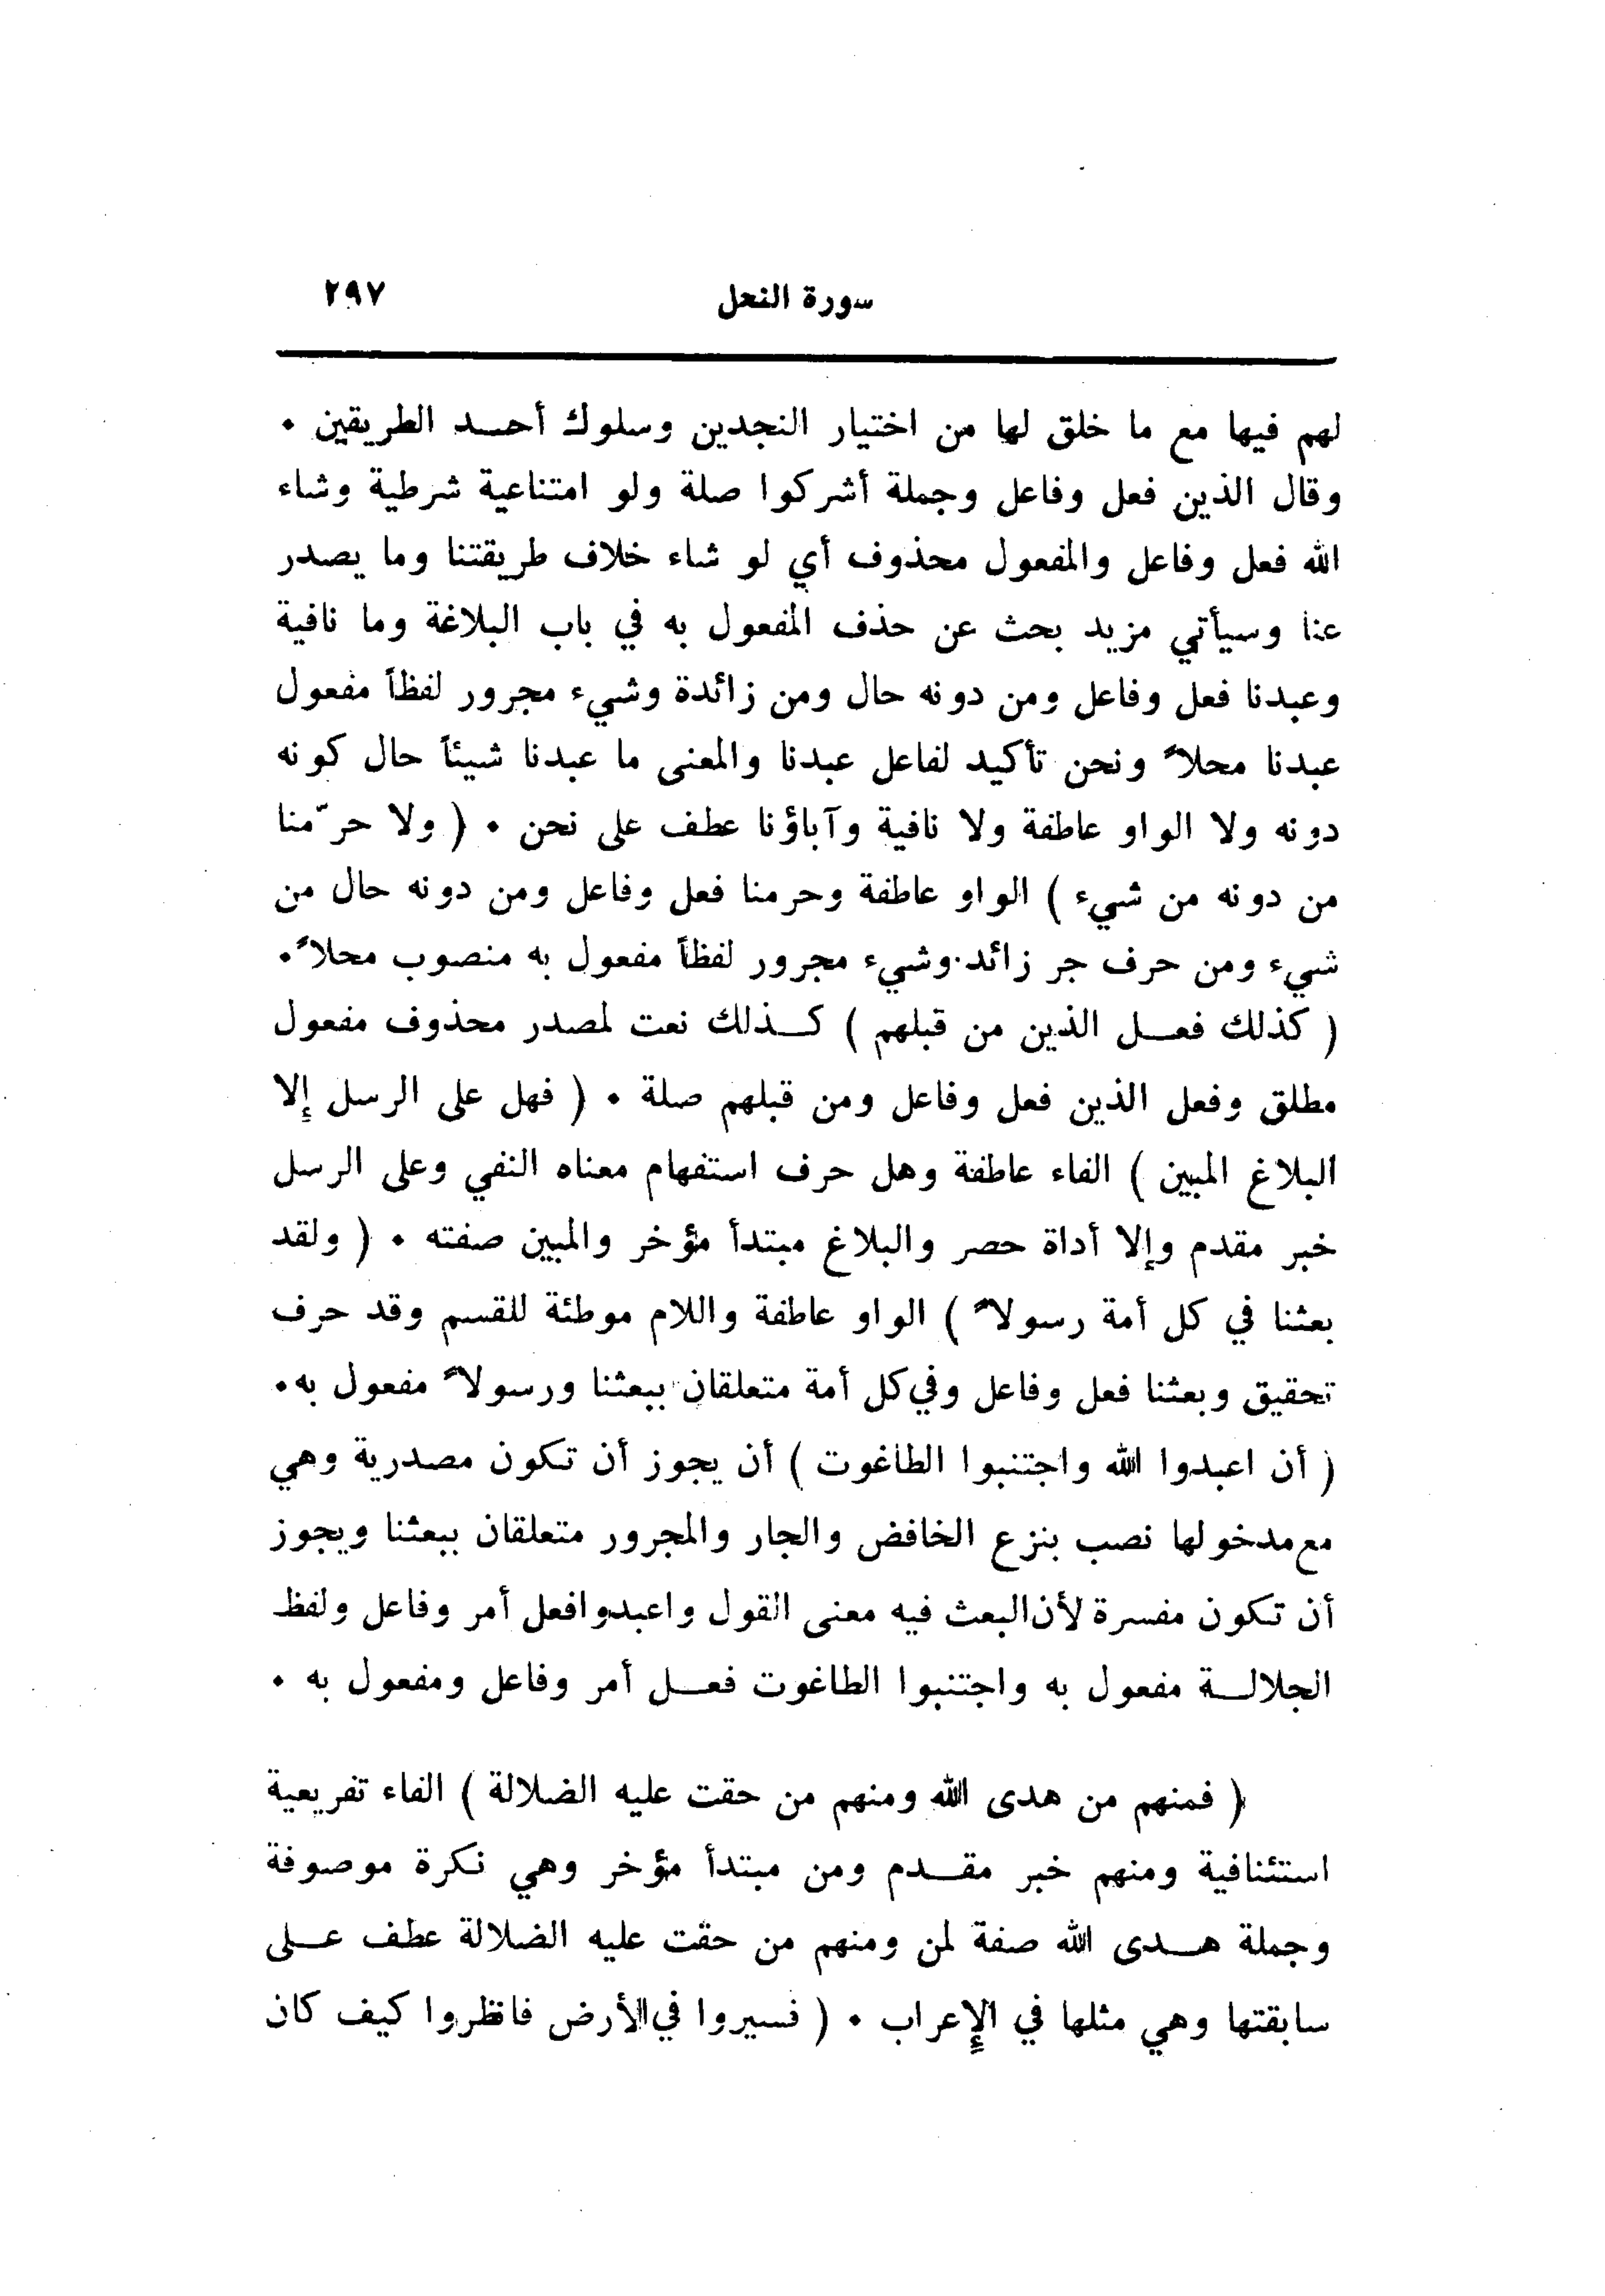 سورة النحل ٢٩٧
لهم فيها مع ما خلق لها من اختيار النجدين وسلوك أحد الطريقين ٠
وقال الذين فعل وفاعل وجملة أشركوا صلة ولو امتناعية شرطية وشاء
الله فعل وفاعل والمفعول محذوف أي لو شاء خلاف طريقتنا وما يصدر
عنا وسيأتي مزيد بحث عن حذف المفعول به في باب البلاغة وما نافية
وعبدنا فعل وفاعل ومن دونه حال ومن زائدة وشيء مجرور لفظاً مفعول
عبدنا محلاً ونحن تأكيد لفاعل عبدنا والمعنى ما عبدنا شيئاً حال كونه
دونه ولا الواو عاطفة ولا نافية وآباؤنا عطف على نحن ٠ ( ولا حرّمنا
من دونه من شيء ) الواو عاطفة وحرمنا فعل وفاعل ومن دونه حال من
شيء ومن حرف جر زائد وشيء مجرور لفظاً مفعول به منصوب محلاً ٠
( كذلك فعل الذين من قبلهم ) كذلك نعت لمصدر محذوف مفعول
مطلق وفعل الذين فعل وفاعل ومن قبلهم صلة ٠ ( فهل على الرسل إلا
البلاغ المبين ) الفاء عاطفة وهل حرف استفهام معناه النفي وعلى الرسل
خبر مقدم وإلا أداة حصر والبلاغ مبتدأ مؤخر والمبين صفته ٠ ( ولقد
بعثنا في كل أمة رسولاً ) الواو عاطفة واللام موطئة للقسم وقد حرف
تحقيق وبعثنا فعل وفاعل وفي كل أمة متعلقان ببعثنا ورسولاً مفعول به ٠
( أن اعبدوا الله واجتنبوا الطاغوت ) أن يجوز أن تكون مصدرية وهي
مع مدخولها نصب بنزع الخافض والجار والمجرور متعلقان ببعثنا ويجوز
أن تكون مفسرة لأن البعث فيه معنى القول واعبدوا فعل أمر وفاعل ولفظ
الجلالة مفعول به واجتنبوا الطاغوت فعل أمر وفاعل ومفعول به ٠
( فمنهم من هدى الله ومنهم من حقت عليه الضلالة ) الفاء تفريعية
استئنافية ومنهم خبر مقدم ومن مبتدأ مؤخر وهي نكرة موصوفة
وجملة هدى الله صفة لمن ومنهم من حقت عليه الضلالة عطف على
سابقتها وهي مثلها في الإعراب ٠ ( فسيروا في الأرض فانظروا كيف كان